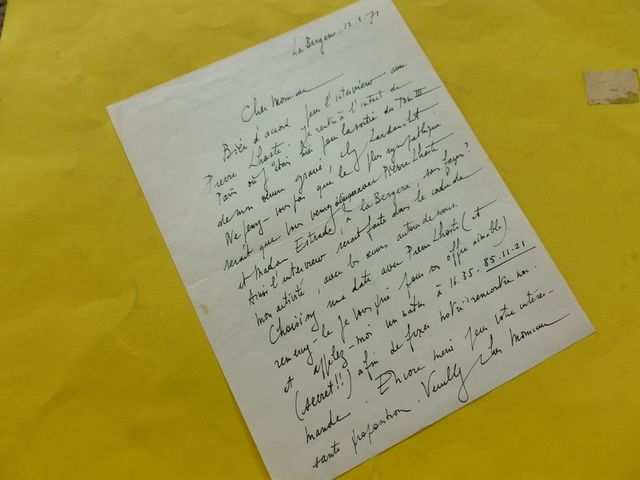 La Bergerie. 12.3.71
Cher Monsieur
Bien d'accord pour l'interview avec
Pierre Lhoste. Je rentre à l'instant de
Paris où j'étais hier pour la sortie du Tome III
de mon œuvre gravé, chez
Ne pensez vous pas que le plus sympathique
serait que vous veniez déjeuner avec Pierre Lhoste
et Madame Estrade, à la Bergerie, sans façon?
Ainsi l'interview serait faite dans le cadre de
mon activité, avec les œuvres autour de nous.
Choisissez une date avec Pierre Lhoste (et
remerciez-le je vous prie pour son offre aimable).
et appelez-moi un matin à 11.35. 85.11.21
(secret!!) afin de fixer notre rencontre nor-
mande. Encore merci pour votre intéres-
sante proposition. Veuillez cher Monsieur